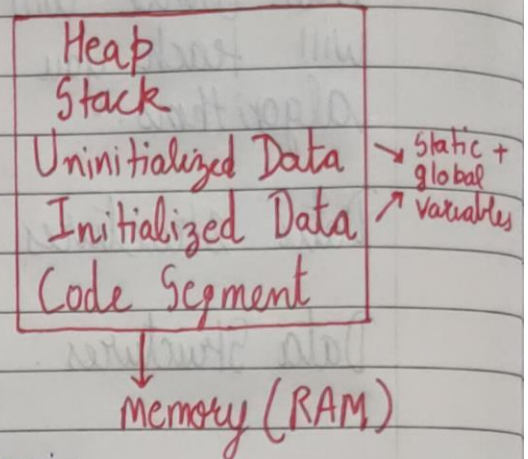 Heap
Stack
Uninitialized Data
Initialized Data
Code Segment
Static +
global
variables
Memory (RAM)